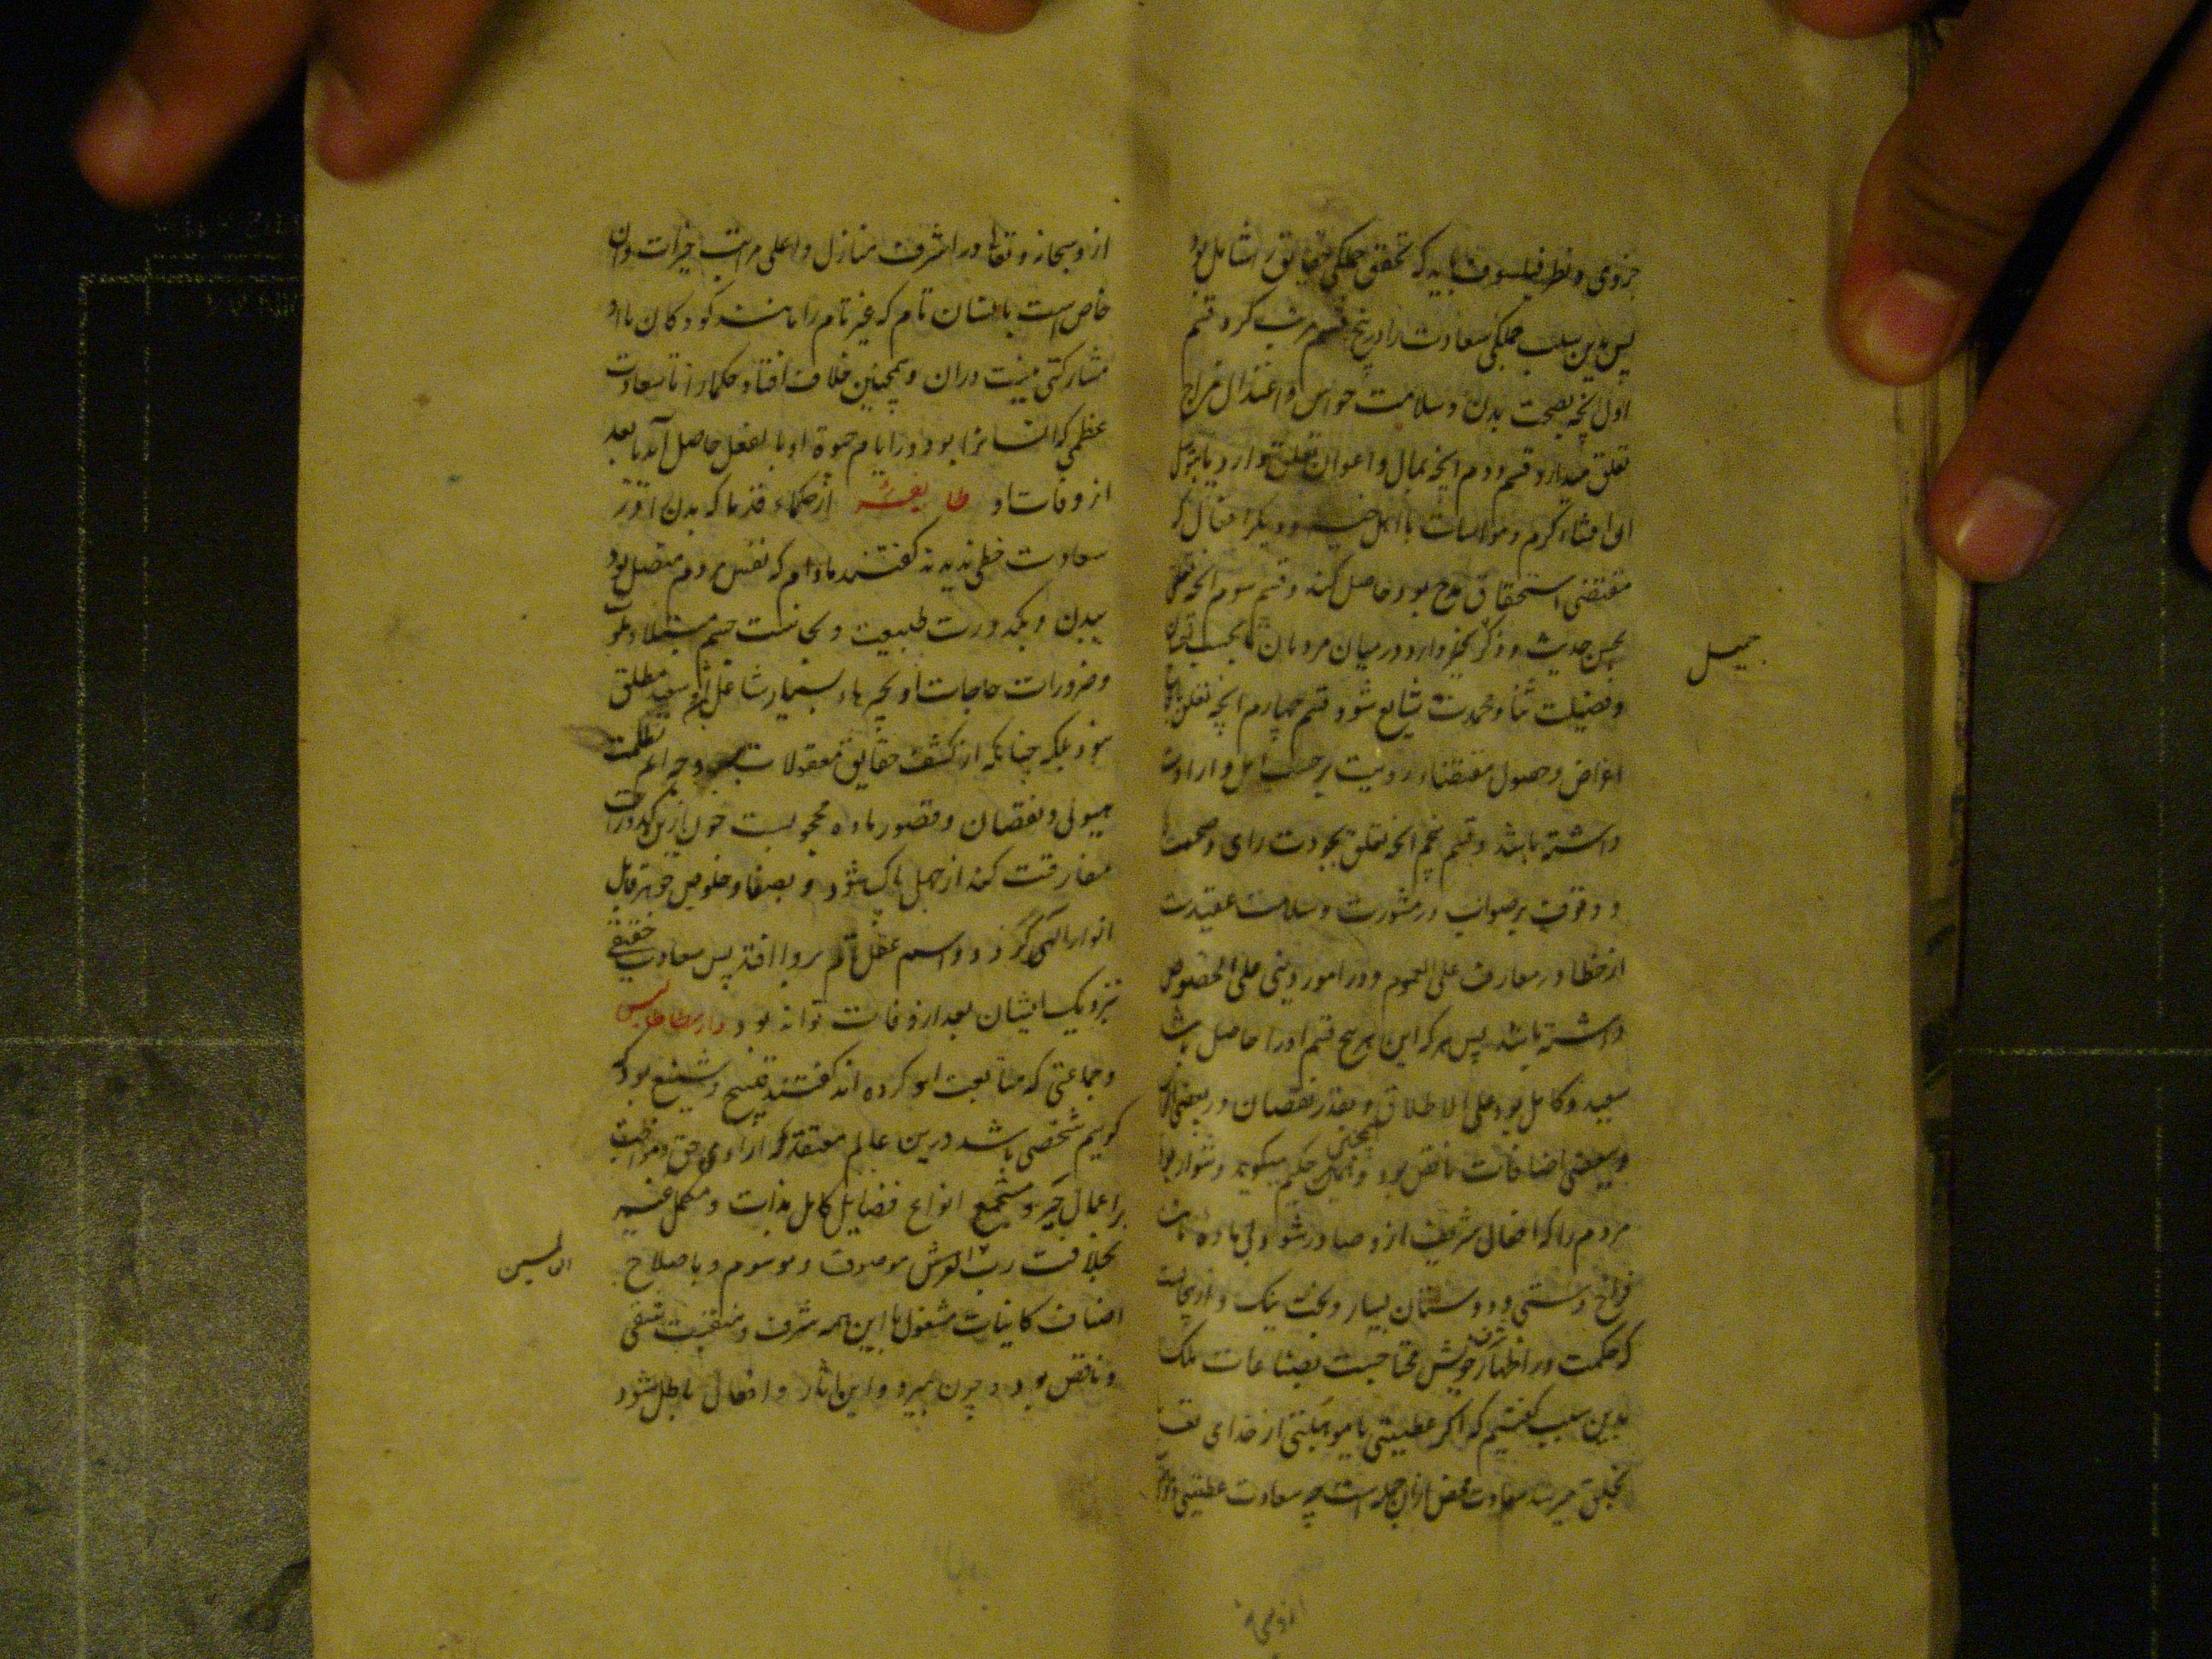 جزوی و نظر فیلسوف باید که تحقق جملگی حقایق را شامل بود
پس بدین سبب جملگی سعادت را در پنج قسم مرتب کرد قسم
اول آنچه بصحت بدن و سلامت حواس و اعتدال مزاج
تعلق میدارد و قسم دوم آنچه بمال و اعوان تعلق دارد تا بتوسل
آن افشاء کرم و مواسات با اهل خیر و دیگر افعال که
مقتضی استحقاق مدح بود حاصل کند و قسم سوم آنچه تعلق
بحسن حدیث و ذکر بخیر دارد در میان مردمان تا بحسب
و فضیلت ثنا و محمدت شایع شود و قسم چهارم آنچه تعلق بانجاح
اغراض و حصول مقتضاء رویت بر حسب امل و ارادت
داشته باشد و قسم پنجم آنچه تعلق بجودت رای و صحت
و وقوف بر صواب در مشورت و سلامت عقیدت
از خطا در معارف علی العموم و در امور دینی علی الخصوص
داشته باشد پس هر که این هر پنج قسم او را حاصل باشد
سعید و کامل بود علی الاطلاق و بقدر نقصان در بعضی
و بعضی اضافات ناقص بود و همچنین حکیم میگوید دشوار بود
مردم را که افعال شریف ازو صادر شود بی ماده مانند
فراخ دستی و دوستان بسیار و بخت نیک و ازینجاست
که حکمت در اظهار شرف خویش محتاجست بصناعات ملک
بدین سبب گفتیم که اگر عطیتی یا موهبتی از خدای تعا
بخلق میرسد سعادت محض از آن جمله است چه سعادت عطیتی و موهبتی
جمیل
ازوسبحانه و تعالی در اشرف منازل و اعلی مراتب خیرات و آن
خاص است بانسان تام که غیر تام را مانند کودکان با او
مشارکتی نیست در آن و همچنین خلاف افتاد حکما را تا سعادت
عظمی که انسانرا بود در ایام حیوة او بالفعل حاصل آید یا بعد
از وفات او طایفه از حکماء قدما که بدن را در
سعادت حظی ندیدند گفتند مادام که نفس مردم متصل بود
ببدن و بکدورت طبیعت و نجاست جسم مبتلا و ملوث
و ضرورات حاجات او بچیزهاء بسیار شاغل او سعید مطلق
نبود بلکه چنانکه از کشف حقایق معقولات بر وجه اتم بظلمت
هیولی و نقصان و قصور ماده محجوبست چون ازین کدورات
مفارقت کند از جهل پاک شود و بصفا و خلوص جوهر قابل
انوار الهی گردد و اسم عقل تام برو افتد پس سعادت حقیقی
نزدیک ایشان بعد از وفات تواند بود و ارسطاطالیس
و جماعتی که متابعت او کرده اند گفتند قبیح و شنیع بود که
گوییم شخصی باشد درین عالم معتقد آراء حق و مواظب
بر اعمال خیر و مستجمع انواع فضایل کامل بذات و مکمل غیر
بخلافت رب العرش موصوف و موسوم و باصلاح
اصناف کاینات مشغول با این همه شرف و منقبت شقی
و ناقص بود و چون بمیرد و این آثار و افعال باطل شود